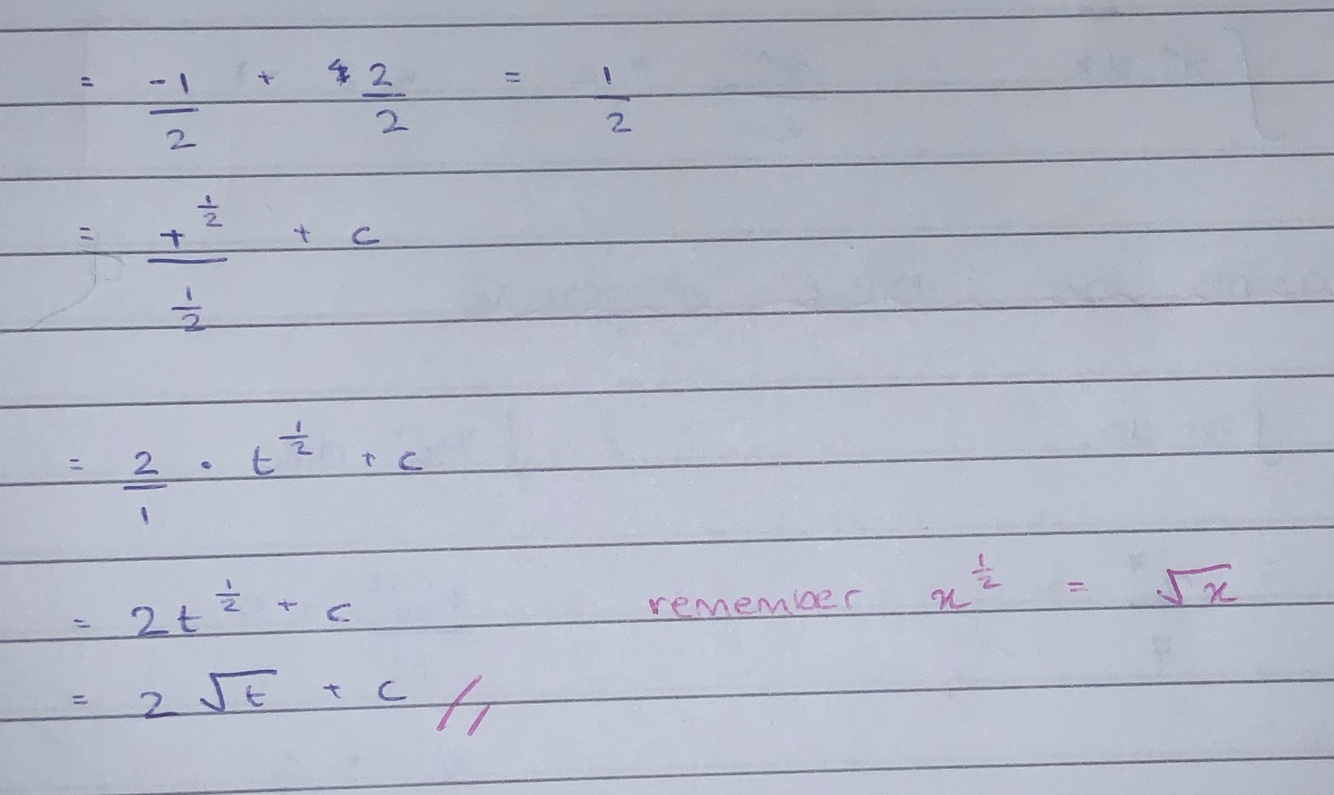 = -1/2 + 2/2 = 1/2
= t^(1/2) / (1/2) + c
= 2/1 · t^(1/2) + c
= 2t^(1/2) + c remember x^(1/2) = √x
= 2√t + c //